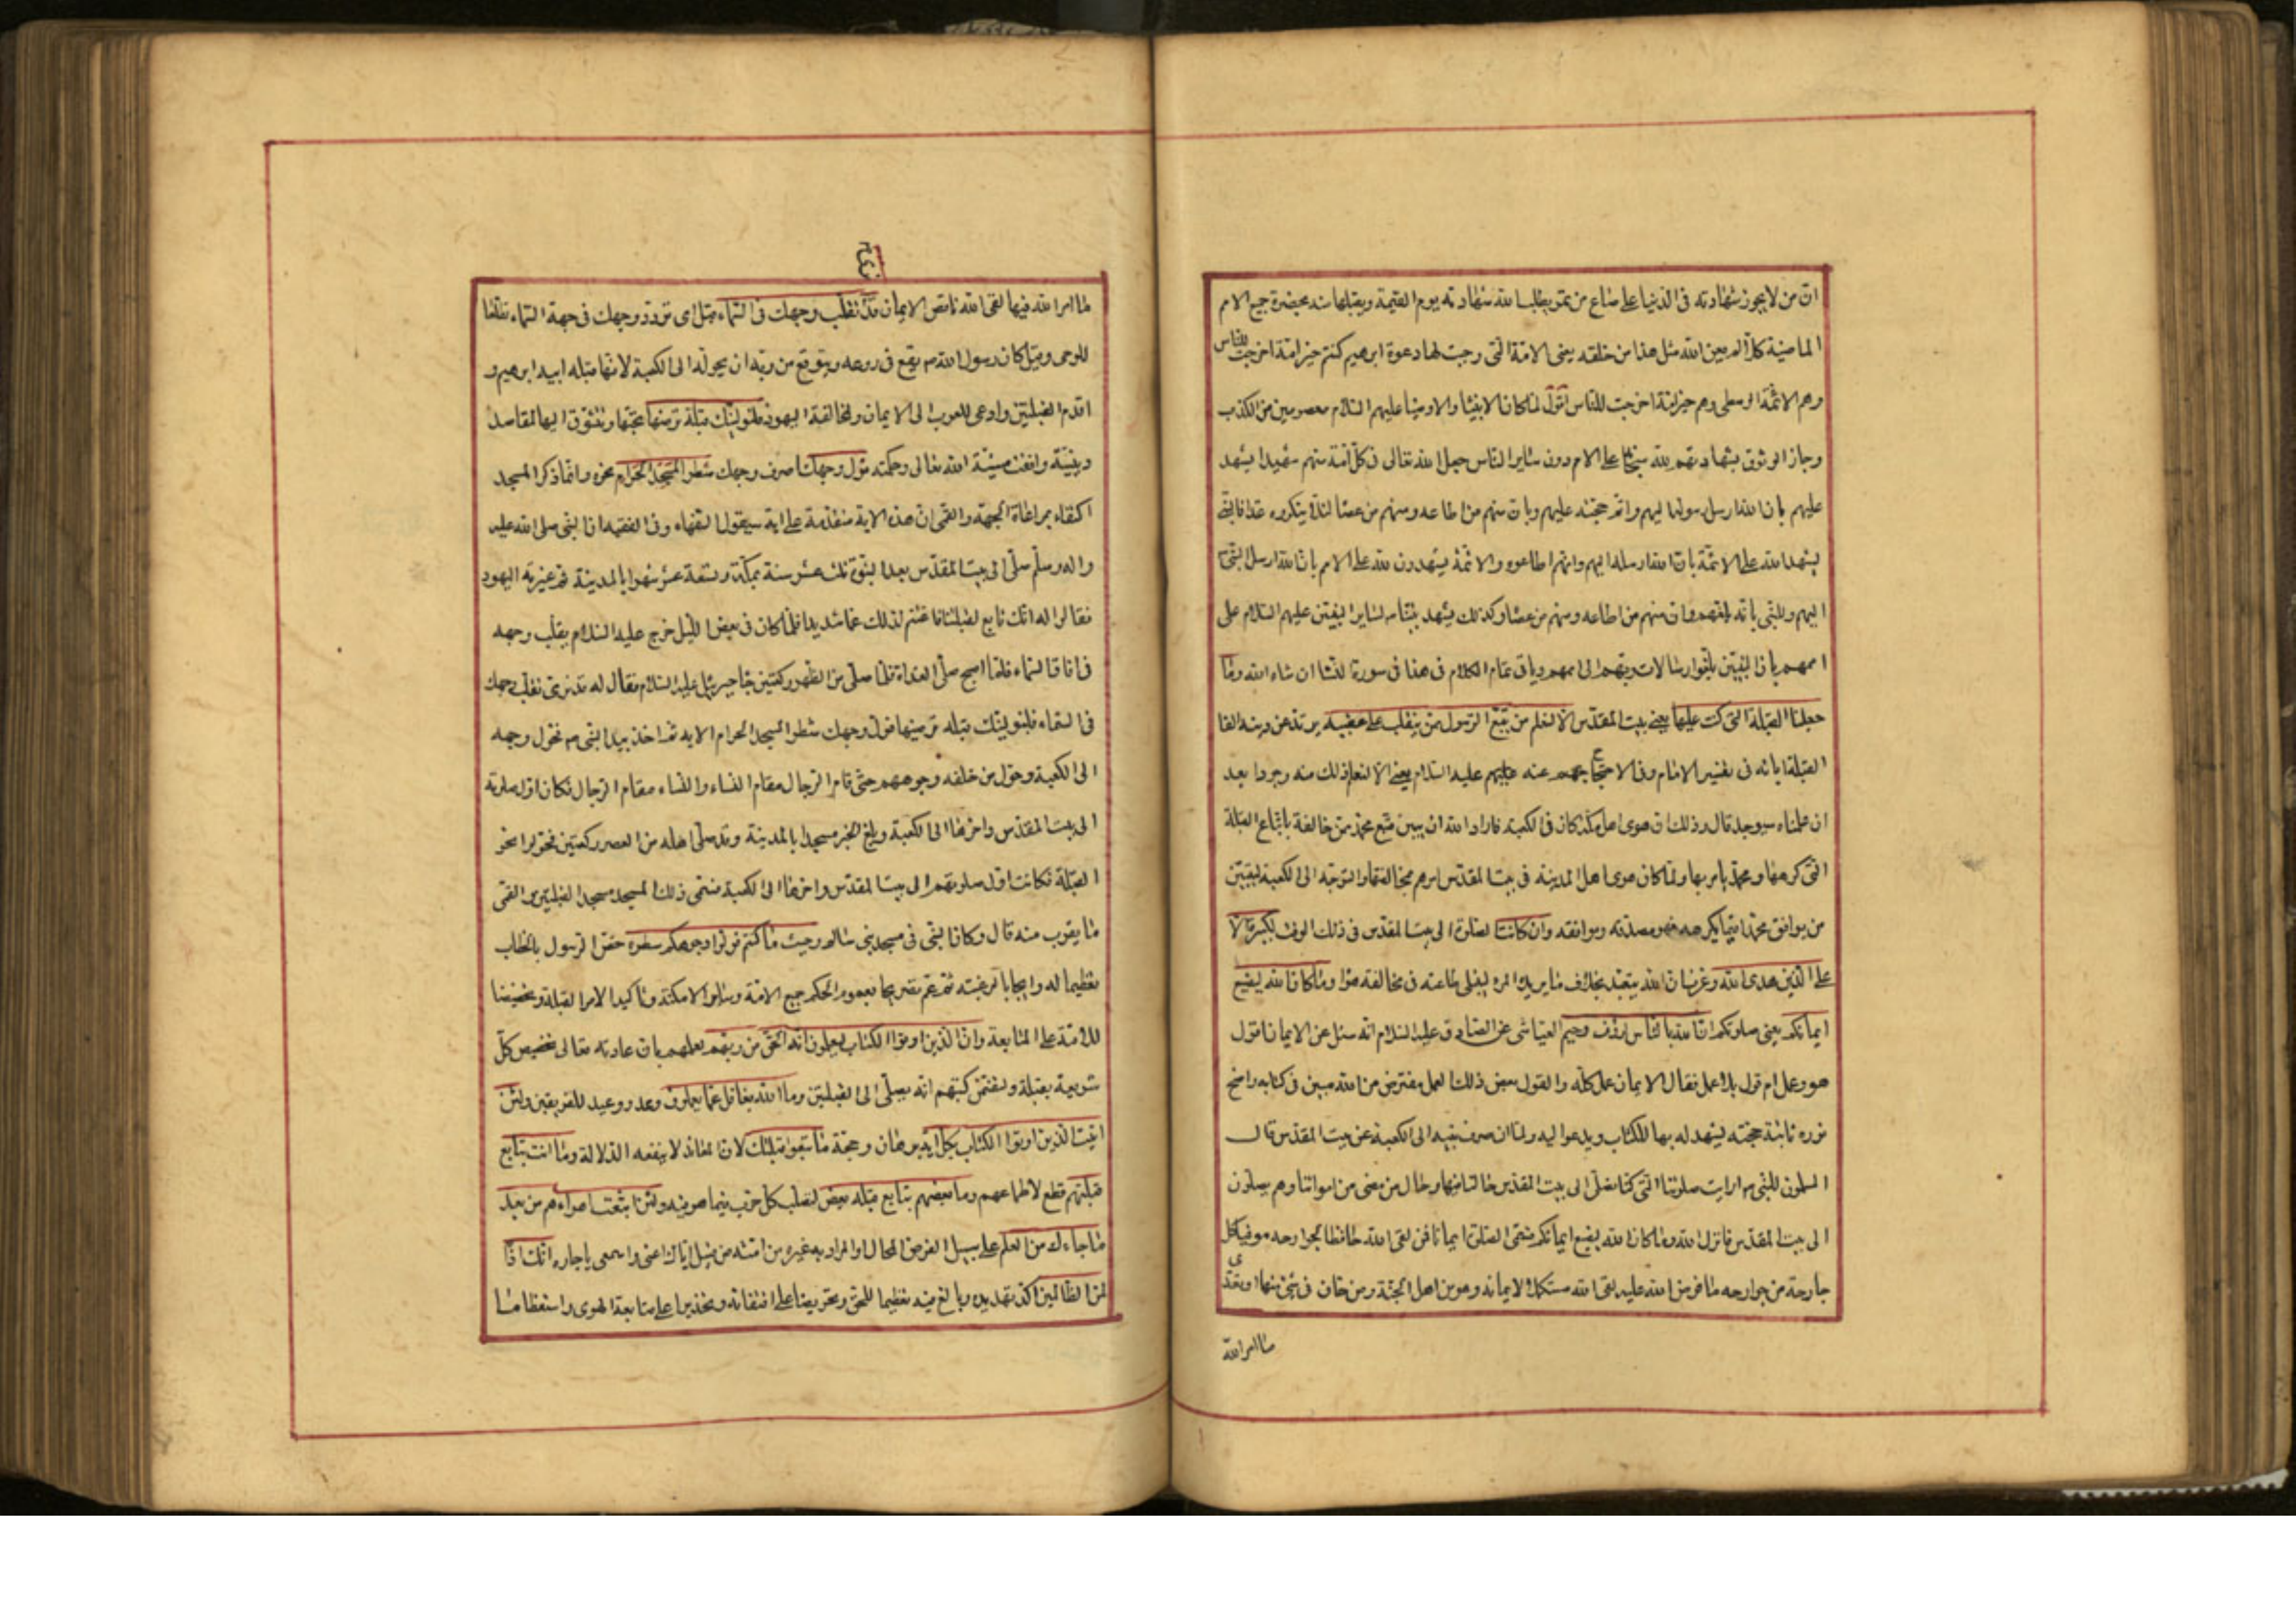 ان من لا يجوز شهادته فى الدنيا على صاع من تمر يطلب الله شهادته يوم القيمة ويقبلها منه بحضرة جميع الامم
الماضية كلا لم يعن الله مثل هذا من خلقه يعنى الامة التى وجبت لها دعوة ابرهيم كنتم خير امة اخرجت للناس
وهم الائمة الوسطى وهم خير امة اخرجت للناس اقول لما كان الانبياء والاوصياء عليهم السلام معصومين من الكذب
وجاز الوثوق بشهادتهم لله سبحانه على الامم دون ساير الناس جعل الله تعالى فى كل امة منهم شهيدا يشهد
عليهم بان الله ارسل رسولها اليهم واتم حجته عليهم وبان منهم من اطاعه ومنهم من عصاه لئلا ينكروه غدا فالنبى
يشهد لله على الائمة بان الله ارسله اليهم وانهم اطاعوه والائمة يشهدون لله على الامم بان الله ارسل النبى ص
اليهم وللنبى بانه بلغهم وان منهم من اطاعه ومنهم من عصاه وكذلك يشهد نبينا ص لساير النبيين عليهم السلام على
اممهم بان النبيين بلغوا رسالات ربهم الى اممهم وياتى تمام الكلام فى هذا فى سورة النسا ان شاء الله وما
جعلنا القبلة التى كنت عليها يعنى بيت المقدس الا لنعلم من يتبع الرسول ممن ينقلب على عقبيه يرتد عن دينه الفا
القبلة ابائه فى تفسير الامام وفى الاحتجاج عنه عليه السلام يعنى الا لنعلم ذلك منه وجودا بعد
ان علمناه سيوجد قال وذلك ان هوى اهل مكة كان فى الكعبة فاراد الله ان يبين متبع محمد من خالفه باتباع القبلة
التى كرهها ومحمد يامر بها ولما كان هوى اهل المدينة فى بيت المقدس امرهم بمخالفتها والتوجه الى الكعبة ليتبين
من يوافق محمدا فيما يكرهه فهو مصدقه وموافقه وان كانت الصلوة الى بيت المقدس فى ذلك الوقت لكبيرة الا
على الذين هدى الله وعرف ان الله يتعبد بخلاف ما يريد المرء ليبتلى طاعته فى مخالفة هواه وما كان الله ليضيع
ايمانكم يعنى صلوتكم ان الله بالناس لرؤف رحيم العياشى عن الصادق عليه السلام انه سئل عن الايمان اقول
هو وعمل ام قول بلا عمل فقال الايمان عمل كله والقول بعض ذلك العمل مفترض من الله مبين فى كتابه واضح
نوره ثابتة حجته يشهد له بها الكتاب ويدعو اليه ولما ان صرف نبيه الى الكعبة عن بيت المقدس قال
المسلمون للنبى ص ارايت صلوتنا التى كنا نصلى الى بيت المقدس ما حالنا فيها وحال من مضى من امواتنا وهم يصلون
الى بيت المقدس فانزل الله وما كان الله ليضيع ايمانكم فسمى الصلوة ايمانا فمن لقى الله حافظا لجوارحه موفيا كل
جارحة من جوارحه ما فرض الله عليه لقى الله مستكملا لايمانه وهو من اهل الجنة ومن خان فى شئ منها او تعدى
ما امر الله
ما امر الله فيها لقى الله ناقص الايمان قد نرى تقلب وجهك فى السماء قيل اى تردد وجهك فى جهة السماء تطلعا
للوحى وقيل كان رسول الله ص يقع فى روعه ويتوقع من ربه ان يحوله الى الكعبة لانها قبلة ابيه ابرهيم و
اقدم القبلتين وادعى للعرب الى الايمان ولمخالفة اليهود فلنولينك قبلة ترضيها تحبها وتتشوق اليها لمقاصد
دينية وافقت مشية الله تعالى وحكمته فول وجهك اصرف وجهك شطر المسجد الحرام نحوه وانما ذكر المسجد
اكتفاء بمراعاة الجهة والقمى ان هذه الاية متقدمة على اية سيقول السفهاء وفى الفقيه ان النبى صلى الله عليه
واله وسلم صلى الى بيت المقدس بعد النبوة ثلث عشر سنة بمكة وتسعة عشر شهرا بالمدينة ثم عيرته اليهود
فقالوا له انك تابع لقبلتنا فاغتم لذلك غما شديدا فلما كان فى بعض الليل خرج عليه السلام يقلب وجهه
فى افاق السماء فلما اصبح صلى الغداة فلما صلى من الظهر ركعتين جاء جبرئيل عليه السلام فقال له قد نرى تقلب وجهك
فى السماء فلنولينك قبلة ترضيها فول وجهك شطر المسجد الحرام الاية ثم اخذ بيد النبى ص فحول وجهه
الى الكعبة وحول من خلفه وجوههم حتى قام الرجال مقام النساء والنساء مقام الرجال فكان اول صلوته
الى بيت المقدس واخرها الى الكعبة وبلغ الخبر مسجدا بالمدينة وقد صلى اهله من العصر ركعتين فحولوا نحو
القبلة فكانت اول صلوتهم الى بيت المقدس واخرها الى الكعبة فسمى ذلك المسجد مسجد القبلتين والقمى
ما يقرب منه قال وكان النبى فى مسجد بنى سالم وحيث ما كنتم فولوا وجوهكم شطره خص الرسول بالخطاب
تعظيما له وايجابا لرغبته ثم عم تصريحا بعموم الحكم جميع الامة وساير الامكنة وتاكيدا لامر القبلة وتخضيضا
للامة على المتابعة وان الذين اوتوا الكتاب ليعلمون انه الحق من ربهم لعلمهم بان عادته تعالى تخصيص كل
شريعة بقبلة ولتضمن كتبهم انه يصلى الى القبلتين وما الله بغافل عما يعملون وعد ووعيد للفريقين ولئن
اتيت الذين اوتوا الكتاب بكل اية برهان وحجة ما تبعوا قبلتك لان المعاند لا ينفعه الدلالة وما انت بتابع
قبلتهم قطع لاطماعهم وما بعضهم بتابع قبلة بعض لتصلب كل حزب فيما هو فيه ولئن اتبعت اهواءهم من بعد
ما جاءك من العلم على سبيل الفرض المحال والمراد به غيره من امته من قبيل اياك اعنى واسمعى يا جاره انك اذا
لمن الظالمين اكد تهديده وبالغ فيه تعظيما للحق وتحريصا على اقتفائه وتحذيرا عن متابعة الهوى واستفظاعا